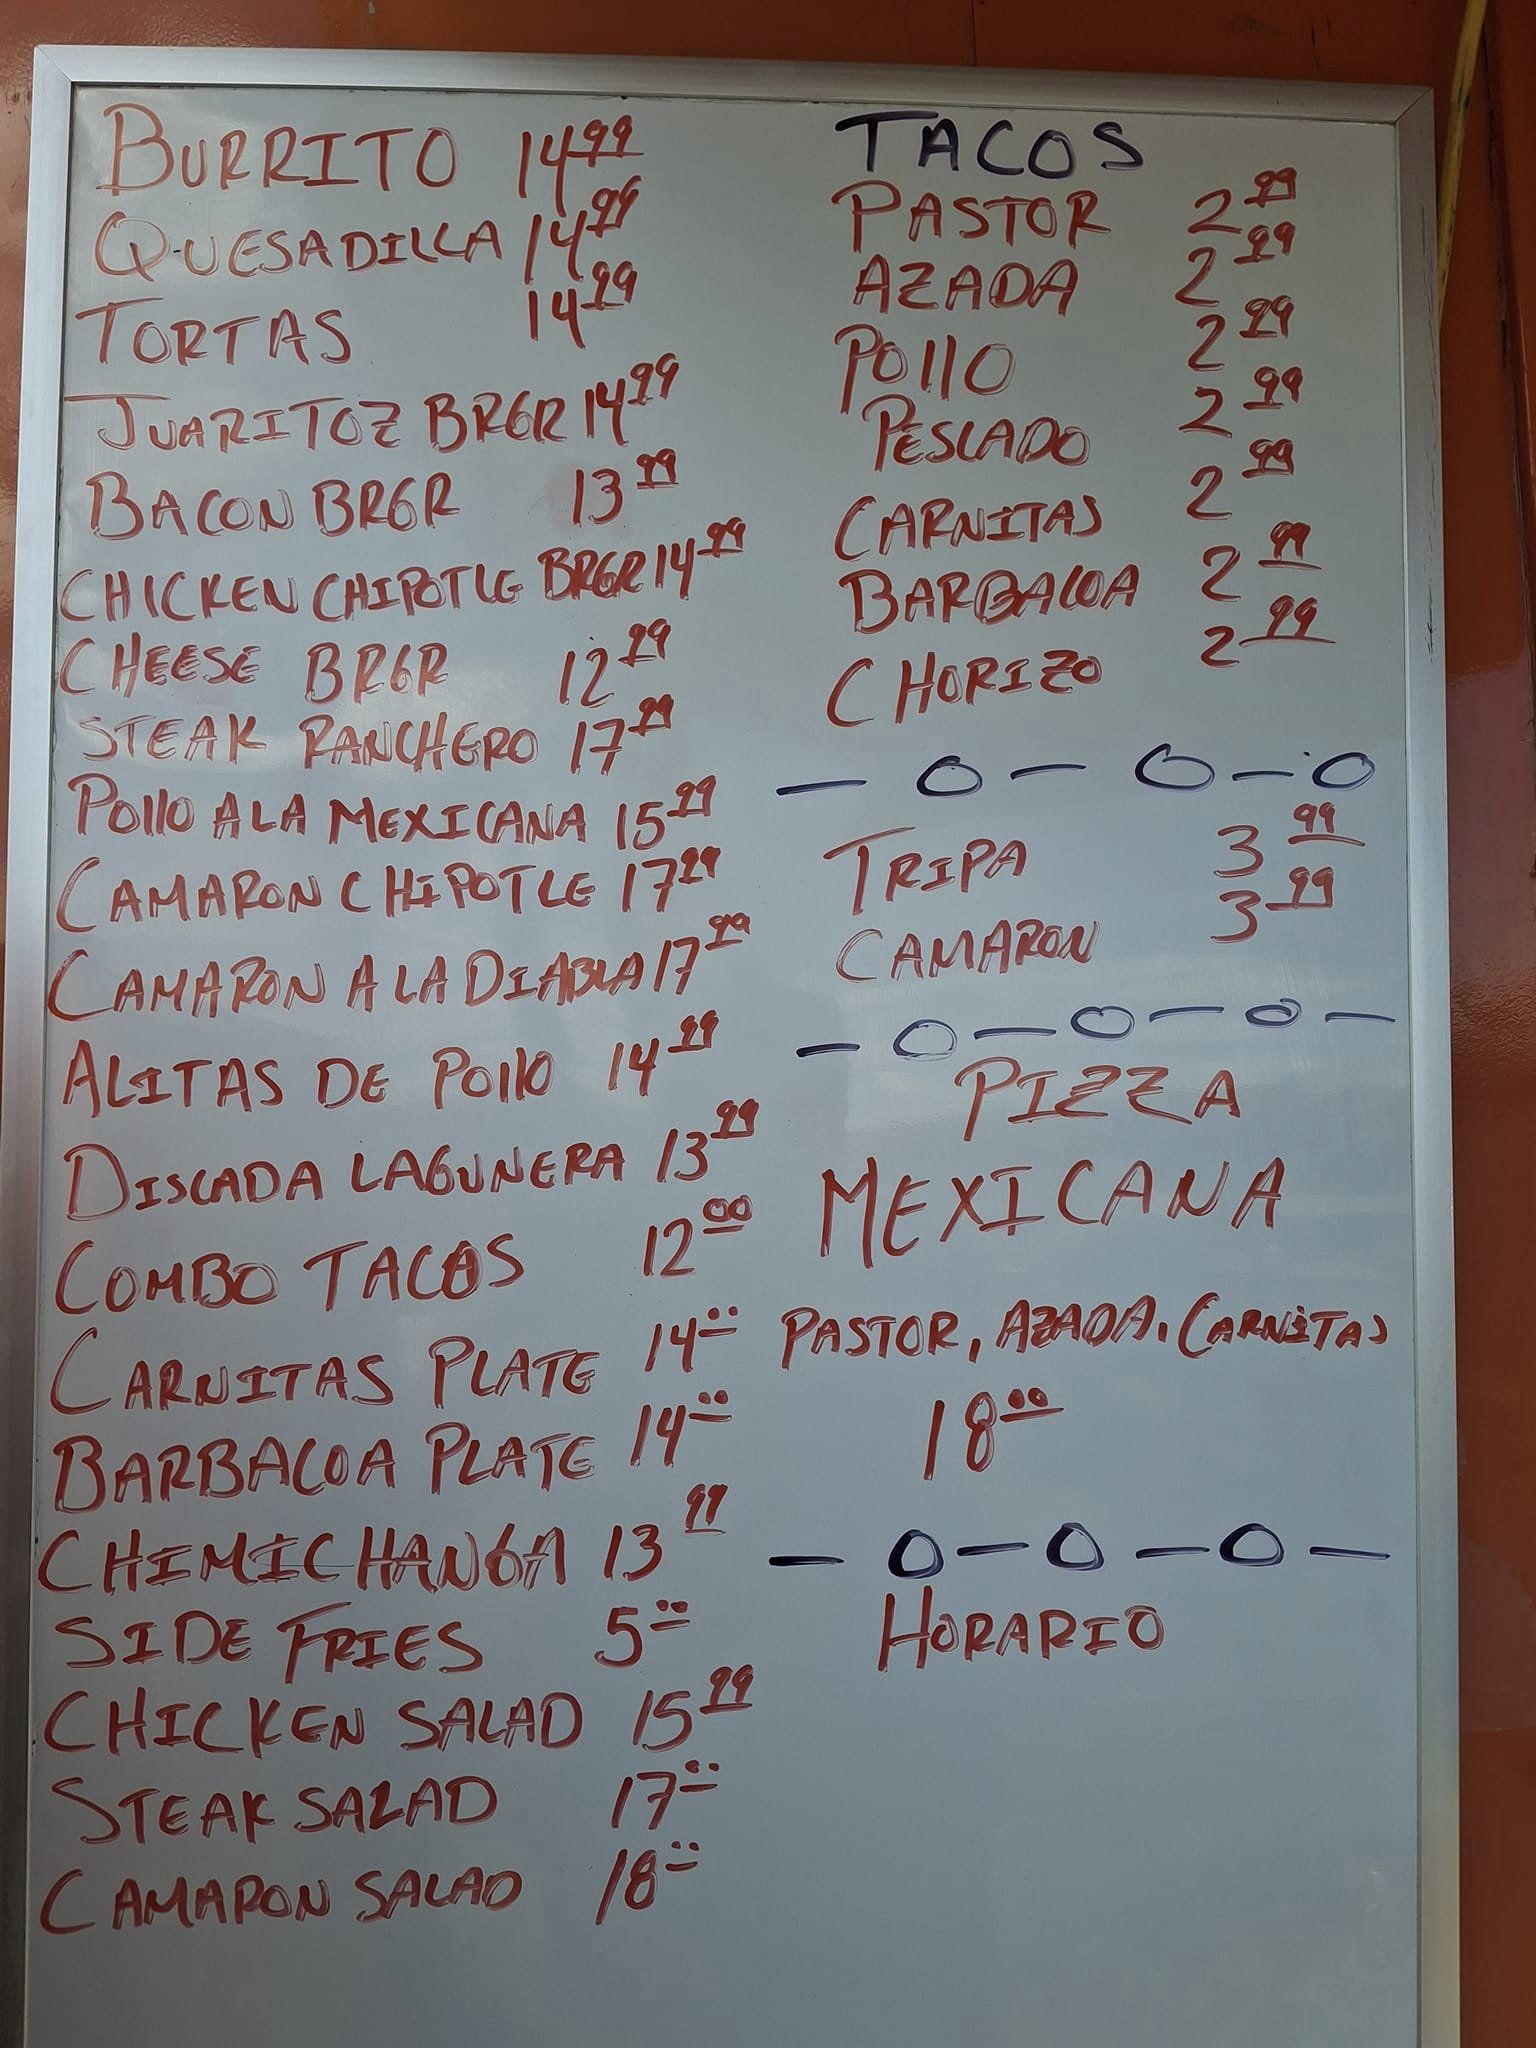 BURRITO 14.99
QUESADILLA 14.99
TORTAS 14.99
JUARITOZ BRGR 14.99
BACON BRGR 13.99
CHICKEN CHIPOTLE BRGR 14.99
CHEESE BRGR 12.99
STEAK RANCHERO 17.99
POLLO A LA MEXICANA 15.99
CAMARON CHIPOTLE 17.99
CAMARON A LA DIABLA 17.99
ALITAS DE POLLO 14.99
DISCADA LAGUNERA 13.99
COMBO TACOS 12.00
CARNITAS PLATE 14.00
BARBACOA PLATE 14.00
CHIMICHANGA 13.99
SIDE FRIES 5.00
CHICKEN SALAD 15.99
STEAK SALAD 17.00
CAMARON SALAD 18.00
TACOS
PASTOR 2.99
AZADA 2.99
POLLO 2.99
PESCADO 2.99
CARNITAS 2.99
BARBACOA 2.99
CHORIZO 2.99
TRIPA 3.99
CAMARON 3.99
PIZZA
MEXICANA
PASTOR, AZADA, CARNITAS
18.00
HORARIO